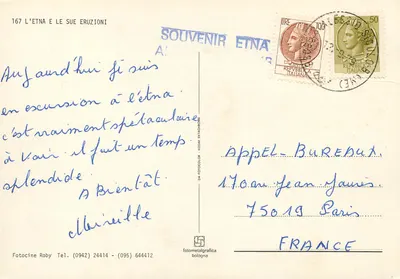 167 L'ETNA E LE SUE ERUZIONI
SOUVENIR ETNA
Aujourd'hui je suis
en excursion à l'etna
c'est vraiment spéctaculaire
à voir. il fait un temps
splendide.
A Bientôt.
Mireille
APPEL-BUREAUX.
170 av Jean Jaurès.
75019 Paris
FRANCE
Fotocine Roby Tel. (0942) 24414 - (095) 644412
fotometalgrafica
bologna
50